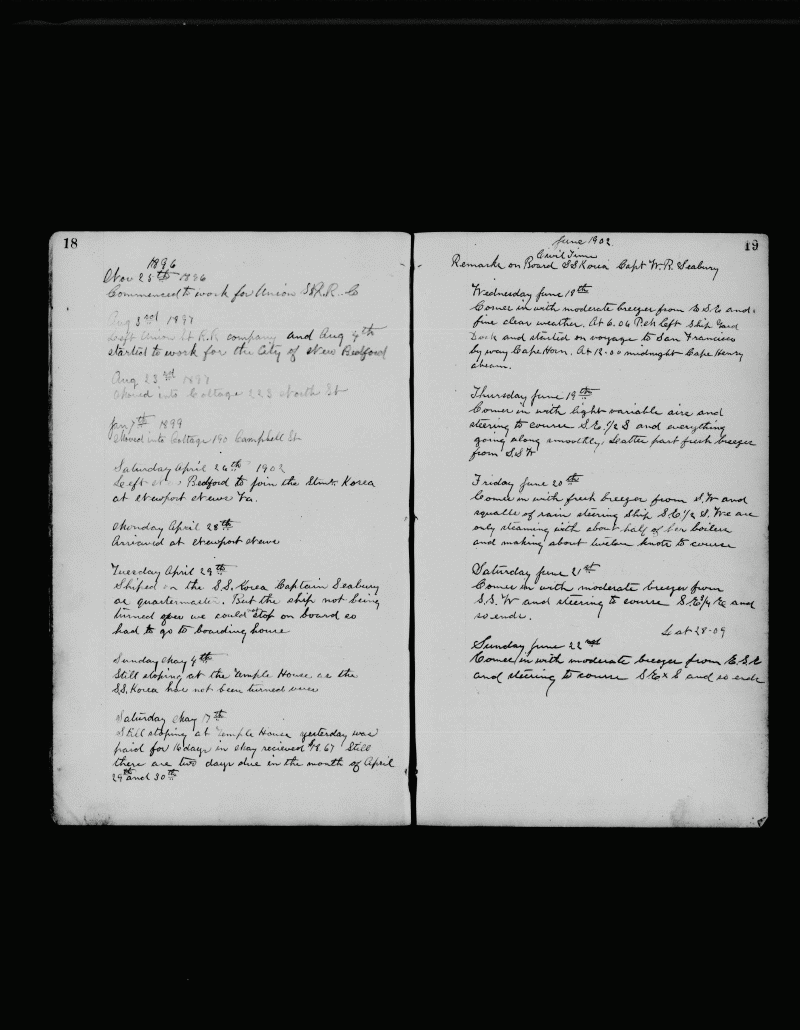 18
1896
Nov 25th 1896
Commenced to work for Union St R.R. Co
Aug 3rd 1897
Left Union St R.R company and Aug 4th
started to work for the City of New Bedford
Aug 23rd 1897
Moved into Cottage 223 North St
Jan 7th 1899
Moved into Cottage 190 Campbell St
Saturday April 26th 1902
Left New Bedford to join the Stmr. Korea
at Newport News Va.
Monday April 28th
Arriaved at Newport News
Tuesday April 29th
Shiped on the S.S. Korea Captain Seabury
as quartermaster. But the ship not being
turned over we could stop on board so
had to go to boarding house
Sunday May 4th
Still stoping at the Temple House as the
S.S. Korea has not been turned over
Saturday May 17th
Still stoping at Temple House yesterday was
paid for 16 days in May recieved $18.67 Still
there are two days due in the month of April
29th and 30th
19
June 1902
Civil Time
Remarks on Board S.S Korea Capt W.R. Seabury
Wednesday June 18th
Comes in with moderate breezes from E.S.E and
fine clear weather. At 6.06 P.M. left Ship Yard
Dock and started on voyage to San Francisco
by way Cape Horn. At 12-00 midnight Cape Henry
abeam.
Thursday June 19th
Comes in with light variable airs and
steering to course S.E. 1/2 S and everything
going along smoothly, Leatter part fresh breezes
from S.S.W
Friday June 20th
Comes in with fresh breezes from S.W and
squalls of rain steering ship S.E 1/2 S. We are
only steaming with about half of her boilers
and making about twelve knots to course
Saturday June 21st
Comes in with moderate breezes from
S.S.W and steering to course S.E 3/4 E and
so ends.
Lat 28-09
Sunday June 22nd
Comes in with moderate breezes from E.S.E
and steering to course S.E x S and so ends